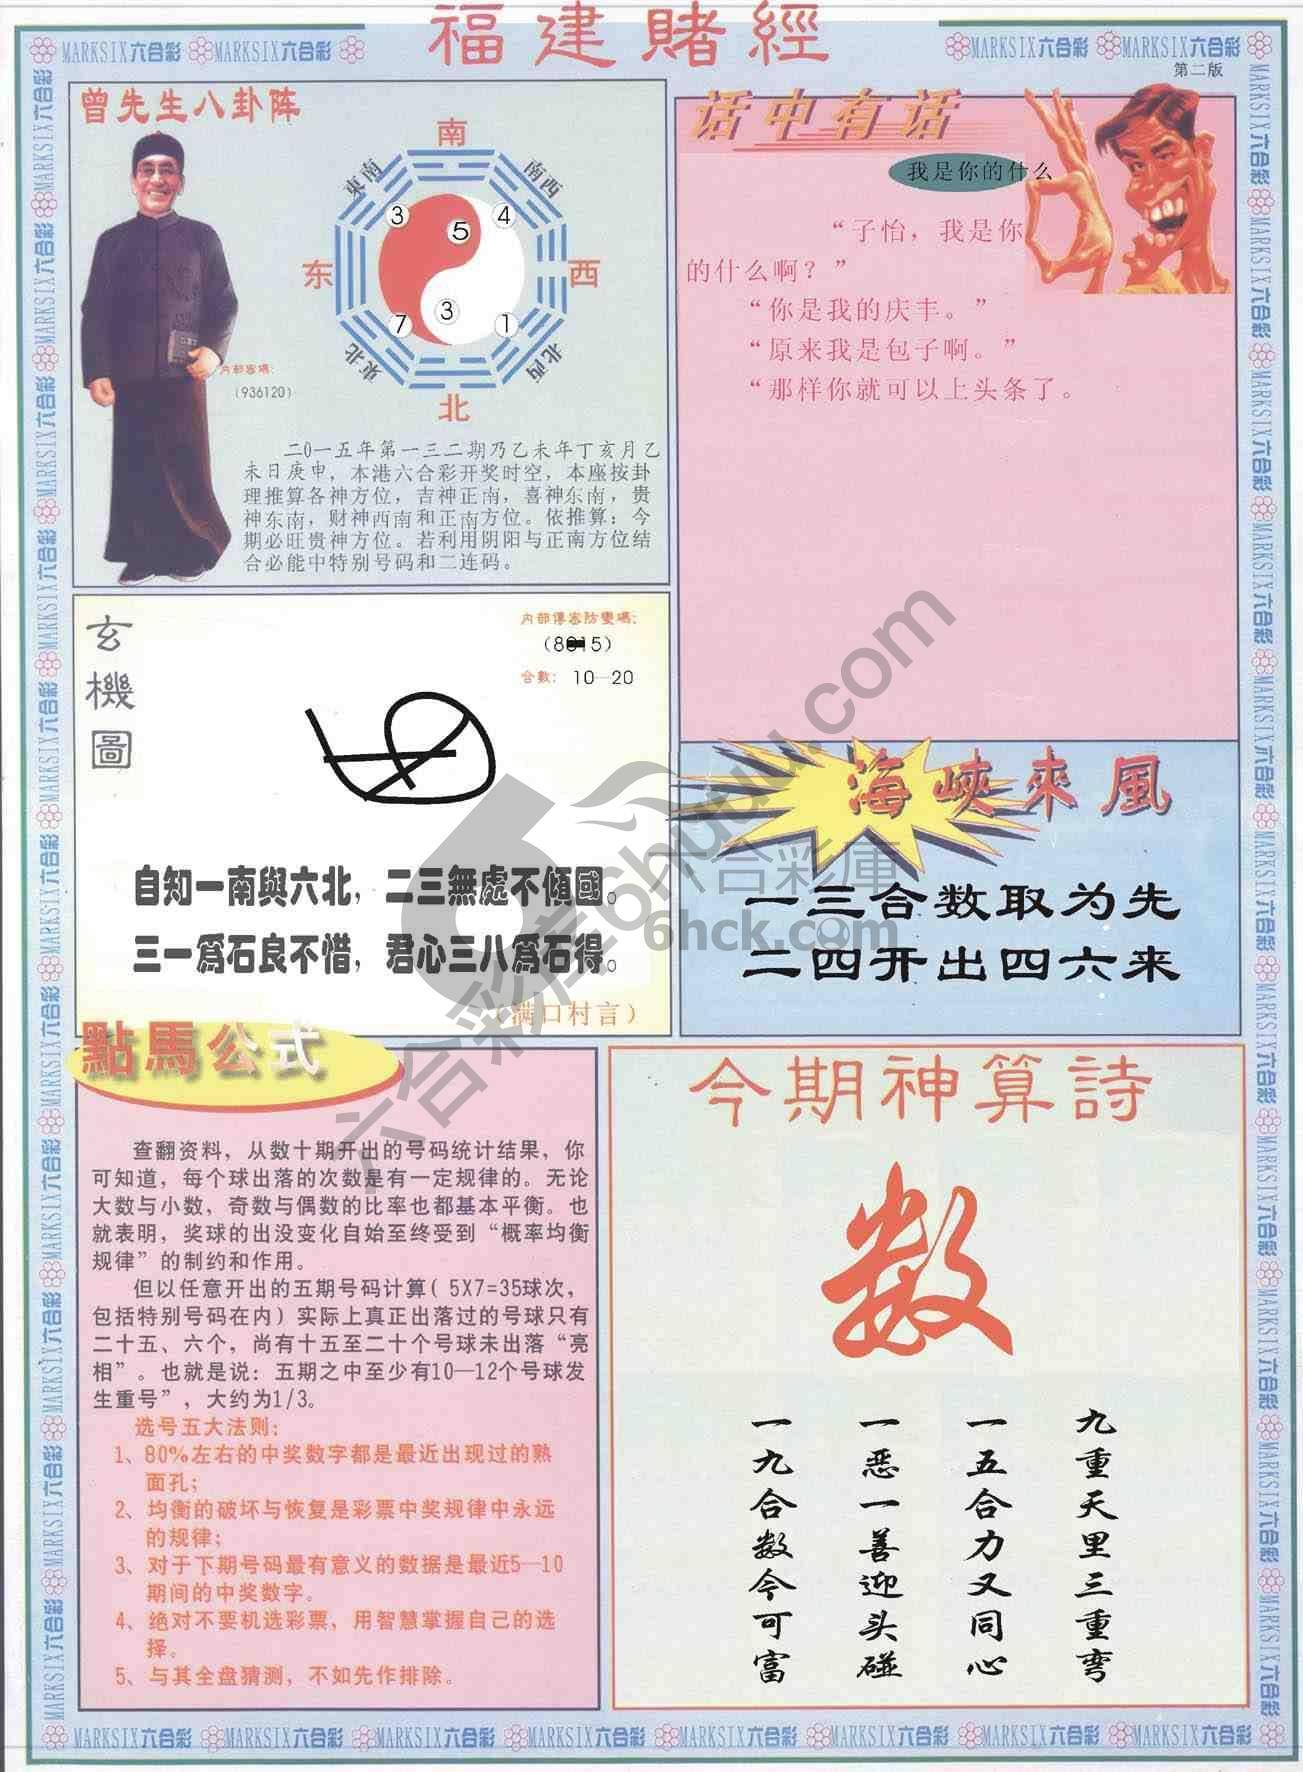 福建賭經
MARKSIX六合彩 MARKSIX六合彩
MARKSIX六合彩 MARKSIX六合彩
第二版
曾先生八卦阵
南
東南
南西
3
5
4
东
西
7
3
1
東北
北西
北
内部密碼：
（936120）
二0一五年第一三二期乃乙未年丁亥月乙
未日庚申，本港六合彩开奖时空，本座按卦
理推算各神方位，吉神正南，喜神东南，贵
神东南，财神西南和正南方位。依推算：今
期必旺贵神方位。若利用阴阳与正南方位结
合必能中特别号码和二连码。
话中有话
我是你的什么
“子怡，我是你
的什么啊？”
“你是我的庆丰。”
“原来我是包子啊。”
“那样你就可以上头条了。
玄機圖
内部傳密防變碼：
合數： 10—20
自知一南與六北，二三無處不傾國。
三一爲石良不惜，君心三八爲石得。
（满口村言）
海峽來風
一三合数取为先
二四开出四六来
點馬公式
查翻资料，从数十期开出的号码统计结果，你
可知道，每个球出落的次数是有一定规律的。无论
大数与小数，奇数与偶数的比率也都基本平衡。也
就表明，奖球的出没变化自始至终受到“概率均衡
规律”的制约和作用。
但以任意开出的五期号码计算( 5X7=35球次，
包括特别号码在内) 实际上真正出落过的号球只有
二十五、六个，尚有十五至二十个号球未出落“亮
相”。也就是说：五期之中至少有10—12个号球发
生重号”，大约为1/3。
选号五大法则：
1、80%左右的中奖数字都是最近出现过的熟
面孔；
2、均衡的破坏与恢复是彩票中奖规律中永远
的规律；
3、对于下期号码最有意义的数据是最近5—10
期间的中奖数字。
4、绝对不要机选彩票，用智慧掌握自己的选
择。
5、与其全盘猜测，不如先作排除。
今期神算詩
数
九重天里三重弯
一五合力又同心
一恶一善迎头碰
一九合数今可富
六合彩庫
6hck.com
MARKSIX六合彩 MARKSIX六合彩 MARKSIX六合彩 MARKSIX六合彩 MARKSIX六合彩 MARKSIX六合彩 MARKSIX六合彩 MARKSIX六合彩